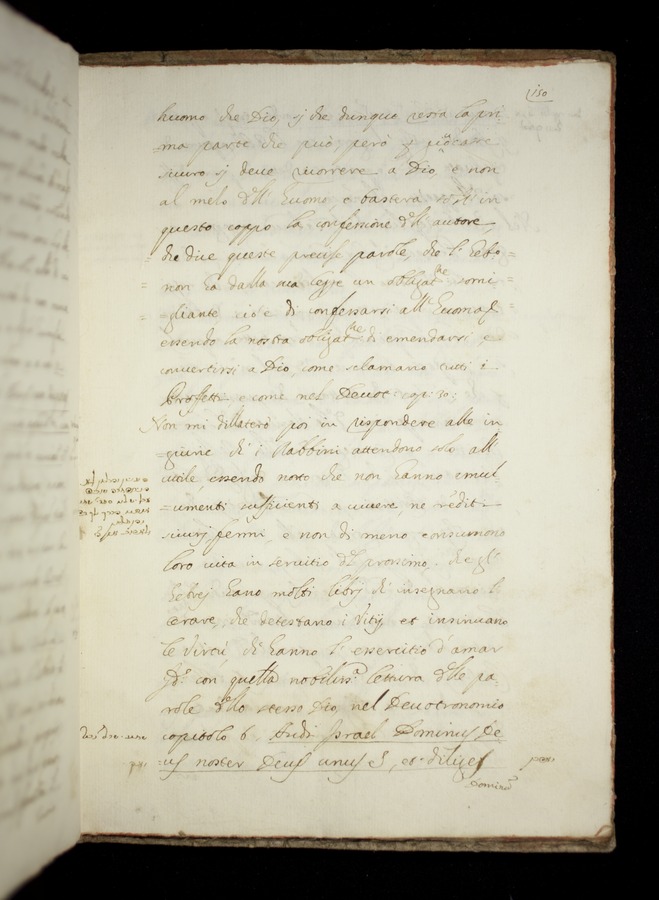 150
huomo che Dio, si che dunque resta la pri
=ma parte che può, però p giocarse
sicuro si deve ricorrere a Dio, e non
al melo dell Euomo, e bastera in
questo coppio la confessione dell autore,
che dice queste precise parole, che l' Hebo
non ha dalla sua legge un obligat.ne somi
=gliante cio'e di confessarsi all' Euomo
essendo la nostra obligat.ne di emendarsi e
convertirsi a Dio, come sclamano tutti i
Profetti e come nel Deuot: cap: 30:
Non mi dillaterò poi in rispondere alle in
=giurie ch' i Rabbini attendono solo all'
utile, essendo noto che non hanno emul
=umenti sufficienti a vivere, ne reditti
sicurj, fermi, e non di meno consumono
loro vita in servitio del prossimo. che gl'
hebrej hano molti librj ch' insegnano l'
orare, che detestano i Vitij et insinuano
le Virtù, ch' hanno l' essercitio d' amar
Id.o con quella nobiliss.a lettura delle pa
role dello stesso Dio, nel Deuotronomio
capitolo 6. Audi Israel Dominus De
=us noster Deus unus E, et diliges
Dominu